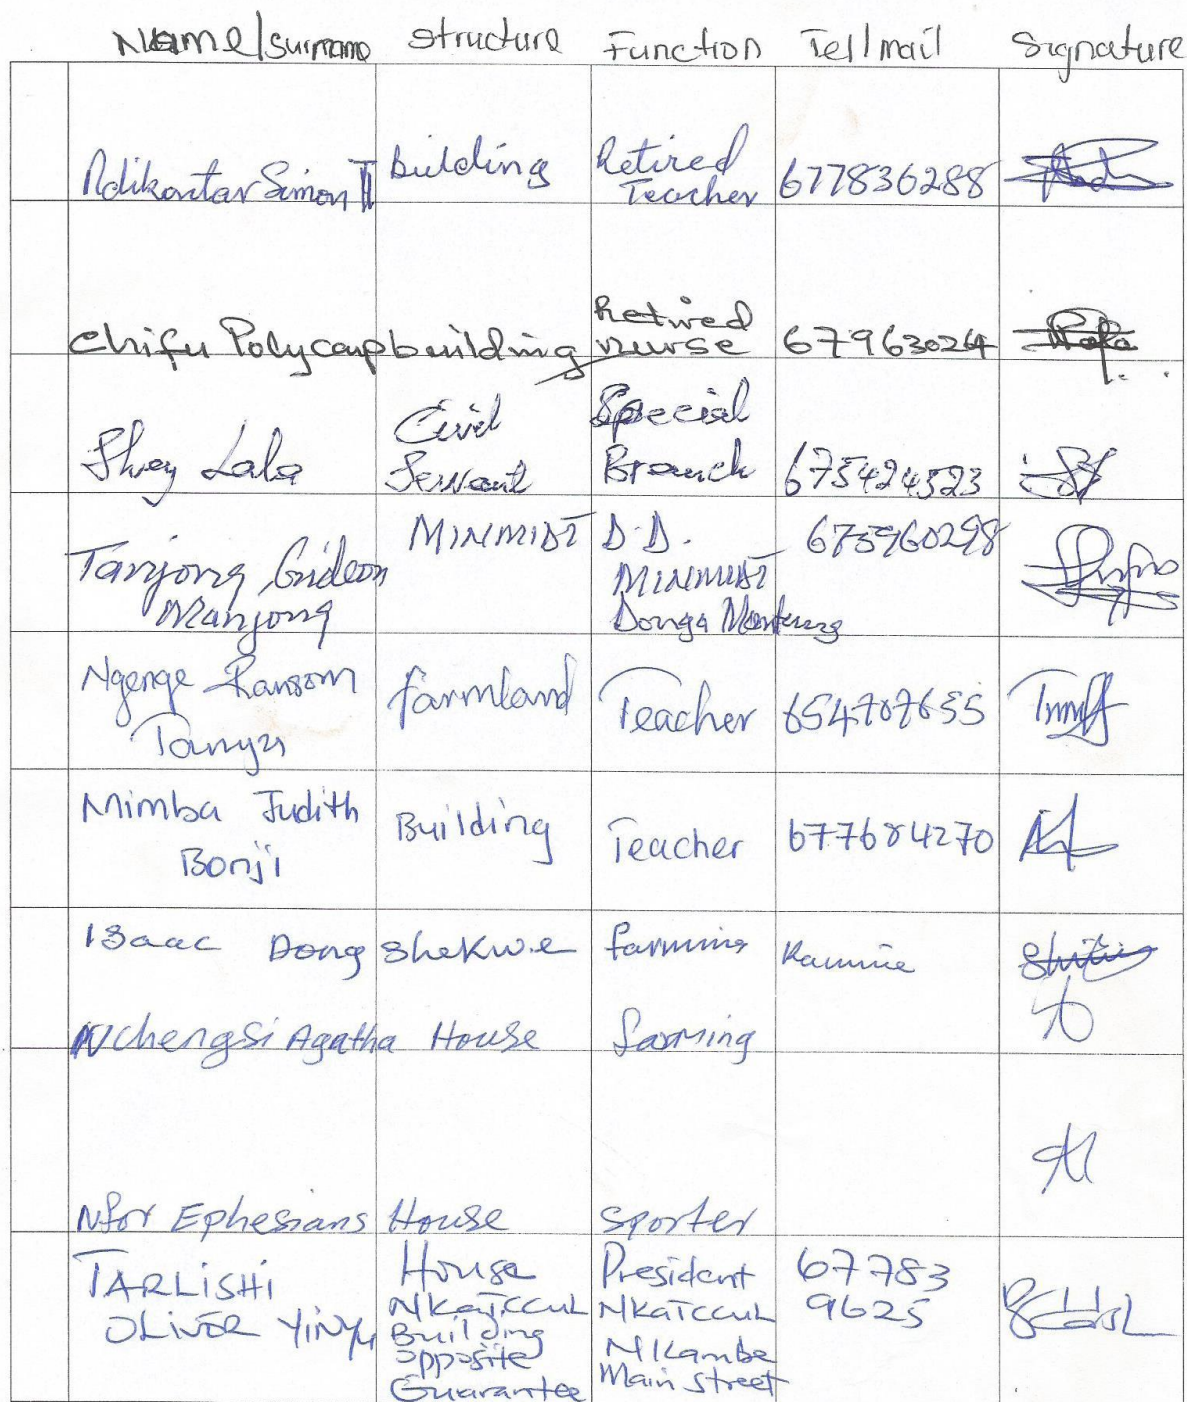 Name/surname structure Function Tel/mail Signature
Ndikontar Simon II building Retired Teacher 677836288
Chifu Polycarp building Retired nurse 679630264
Shey Lala Civil Servant Special Branch 675424523
Tanjong Gideon Manjong MINMIDT D.D. MINMIDT Donga Mantung 675960298
Ngenge Ransom Tanyu farmland Teacher 654707655
Mimba Judith Bonji Building Teacher 677684270
Isaac Dong Shekwe farming
Nchengsi Agatha House farming
Nfor Ephesians House sporter
TARLISHI OLIVER YINYU House NKATCCUL Building opposite Guarantee President NKATCCUL Nkambe Main Street 67783 9625